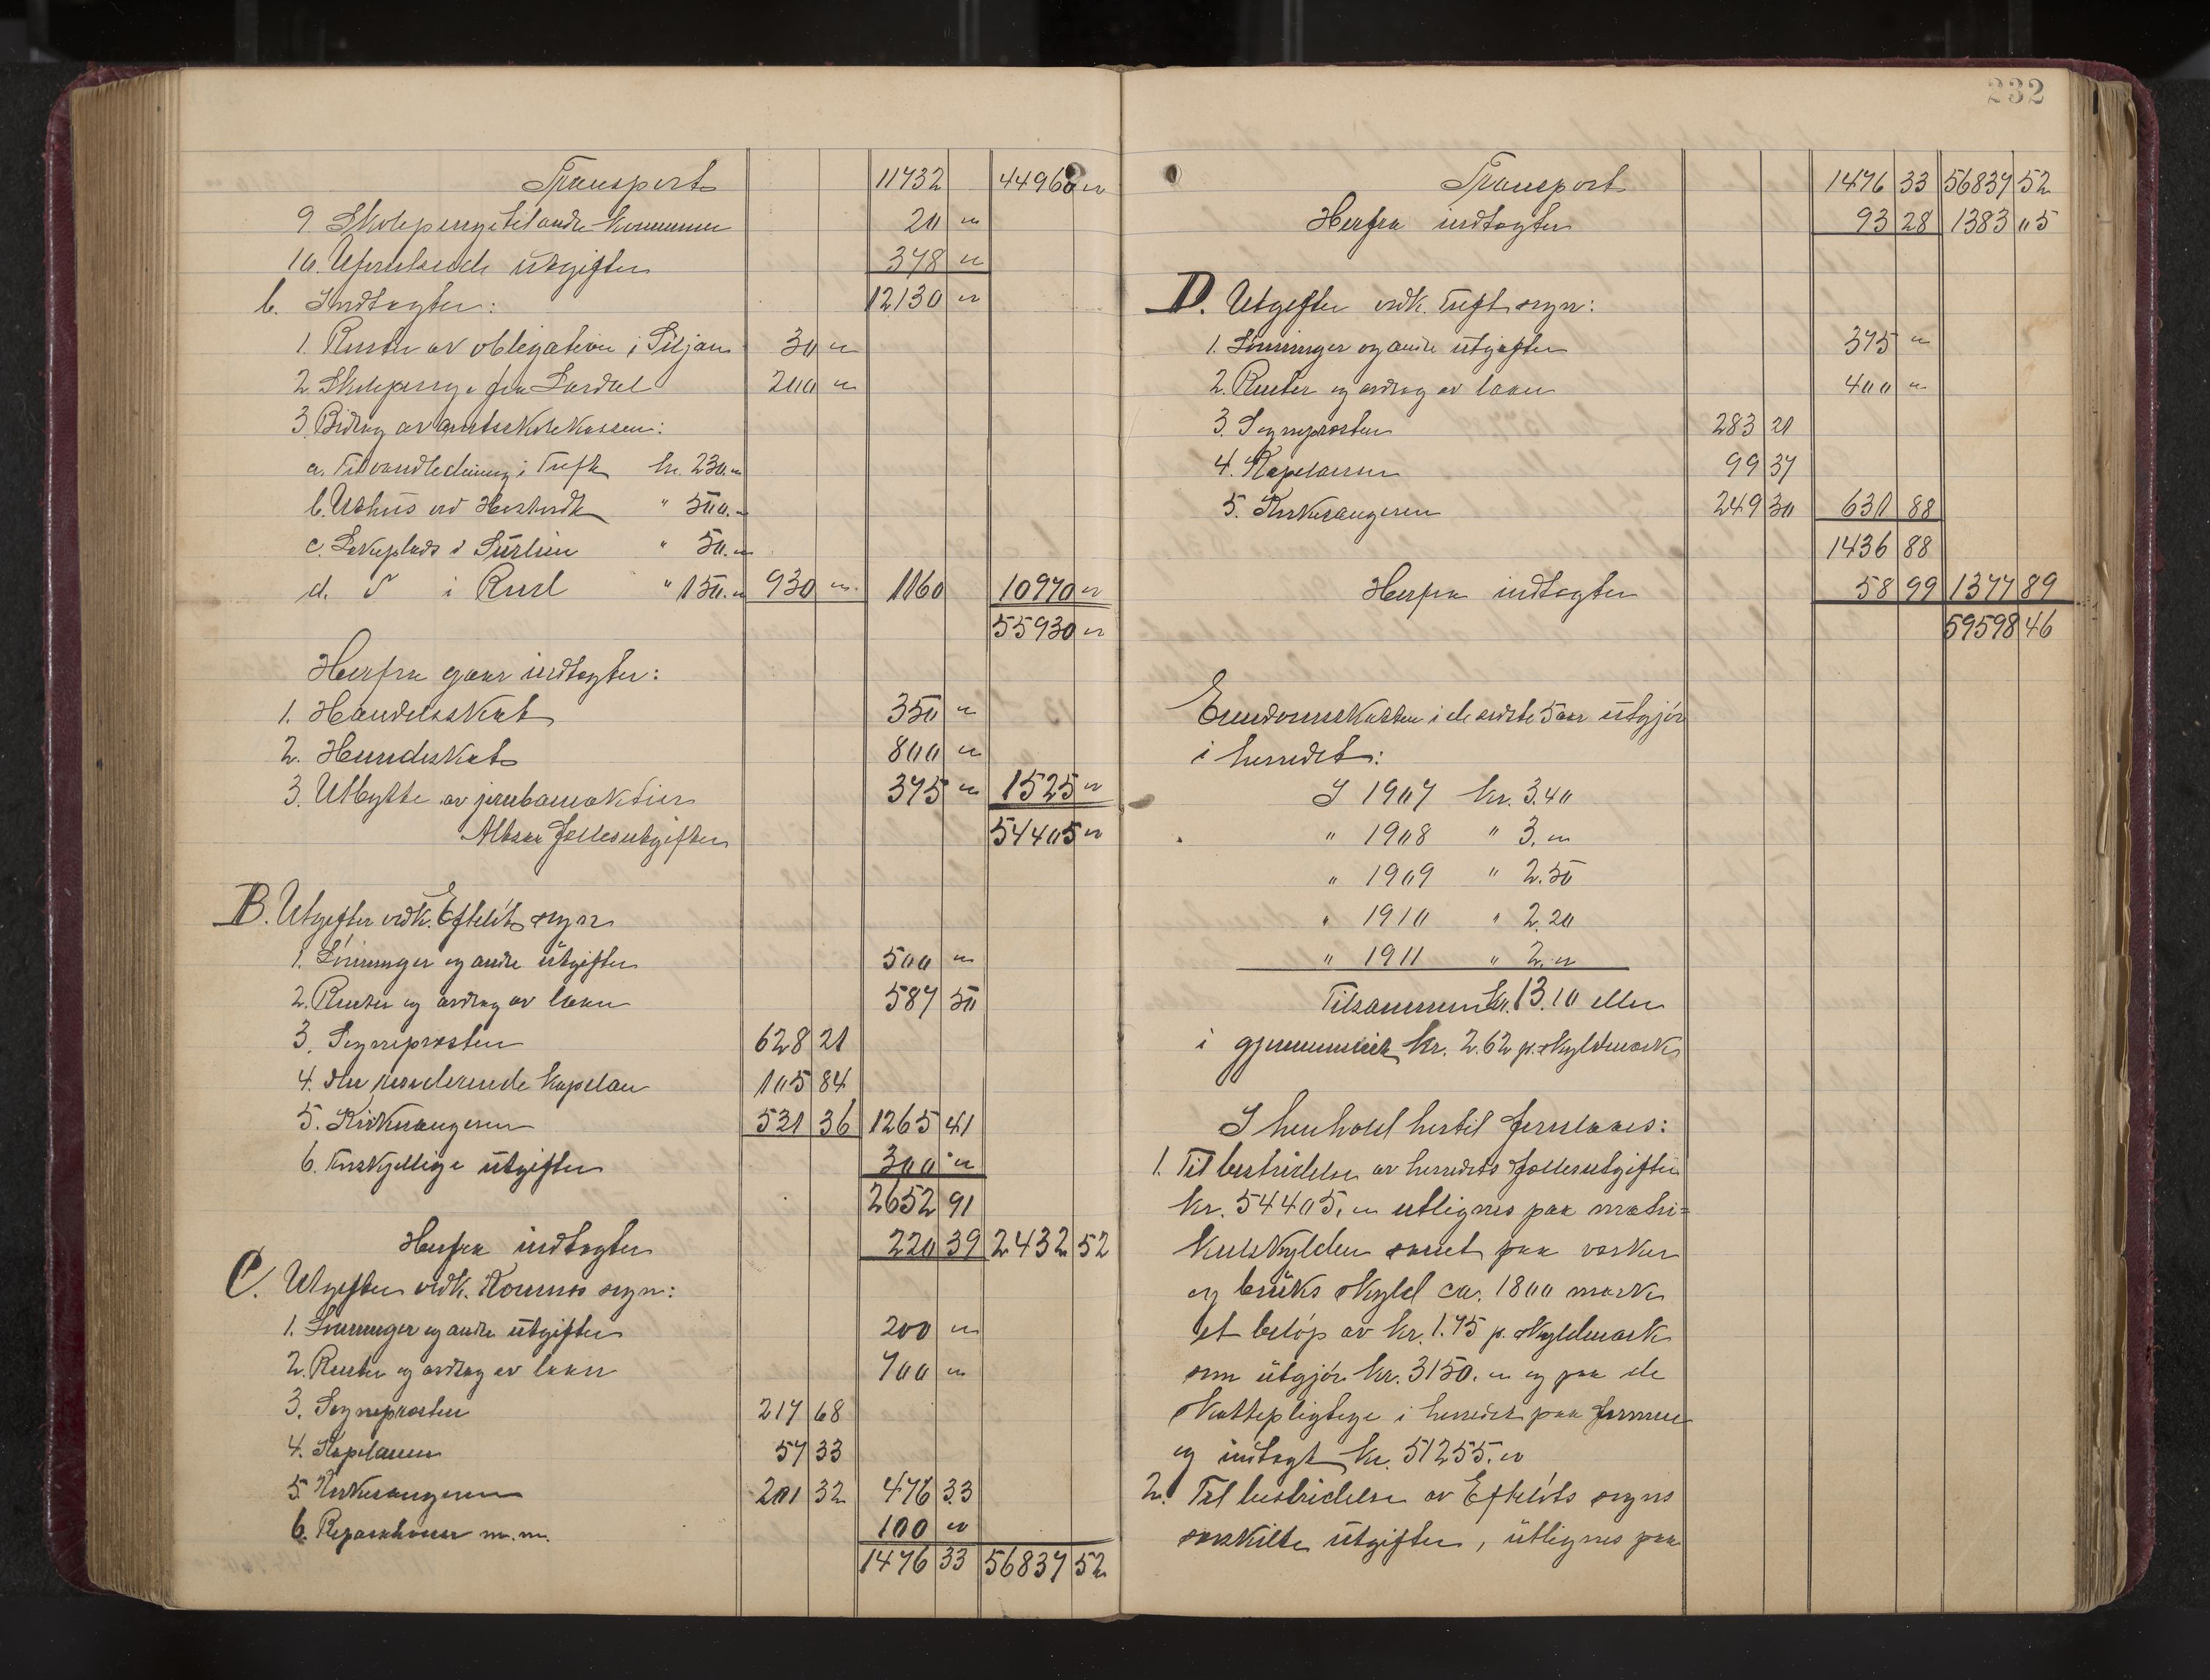 Transport 11732 44960 "
9. Skolepenge til andre kommuner 20 "
10. Uforutseede utgifter 378 "
b. Indtægter: 12130 "
1. Renter av obligation i Siljan 30 "
2. Skolepenge fra Lardal 200 "
3. Bidrag av amtsskolekassen:
a. Til vandledning i Tuft kr. 230. "
b. Uthus ved " 500. "
c. Lekeplads " 50. "
d. i " 150. " 930 " 1160 10970 "
55930 "
Herfra gaar indtægter:
1. Handelsskat 350 "
2. Hundeskat 800 "
3. Utbytte av jernbaneaktier 375 " 1525 "
Altsaa Fællesutgifter 54405 "
B. Utgifter vedk. Efteløts sogn
1. Lønninger og andre utgifter 500 "
2. Renter og avdrag av laan 587 50
3. Sognepræsten 628 21
4. den residerende kapelan 105 84
5. Kirkesangeren 531 36 1265 41
6. Forskjellige utgifter 300 "
2652 91
Herfra indtægter 220 39 2432 52
C. Utgifter vedk. Komnes sogn:
1. Lønninger og andre utgifter 200 "
2. Renter og avdrag av laan 700 "
3. Sognepræsten 217 68
4. Kapelanen 57 33
5. Kirkesangeren 201 32 476 33
6. Reparationer m. m. 100 "
1476 33 56837 52
232
Transport 1476 33 56837 52
Herfra indtægter 93 28 1383 05
D. Utgifter vedk. Tuft sogn:
1. Lønninger og andre utgifter 375 "
2. Renter og avdrag av laan 400 "
3. Sognepræsten 283 21
4. Kapelanen 99 37
5. Kirkesangeren 249 30 631 88
1436 88
Herfra indtægter 58 99 1377 89
59598 46
Eiendomsskatten i de sidste 5 aar utgjør
i herredet:
I 1907 kr. 3.40
" 1908 " 3. "
" 1909 " 2.50
" 1910 " 2.20
" 1911 " 2. "
Tilsammen kr. 13.10 eller
i gjennemsnit kr. 2.62 p. skyldmark
I henhold hertil foreslaaes:
1. Til bestridelse av herredets fællesutgifter
kr. 54405. " utlignes paa matri=
kulskylden samt paa verker
og bruks skyld ca. 1800 mark
et beløp av kr. 1.75 p. skyldmark
som utgjør kr. 3150. " og paa de
skattepligtige i herredet paa formue
og indtægt kr. 51255. "
2. Til bestridelse av Efteløts sogns
særskilte utgifter, utlignes paa